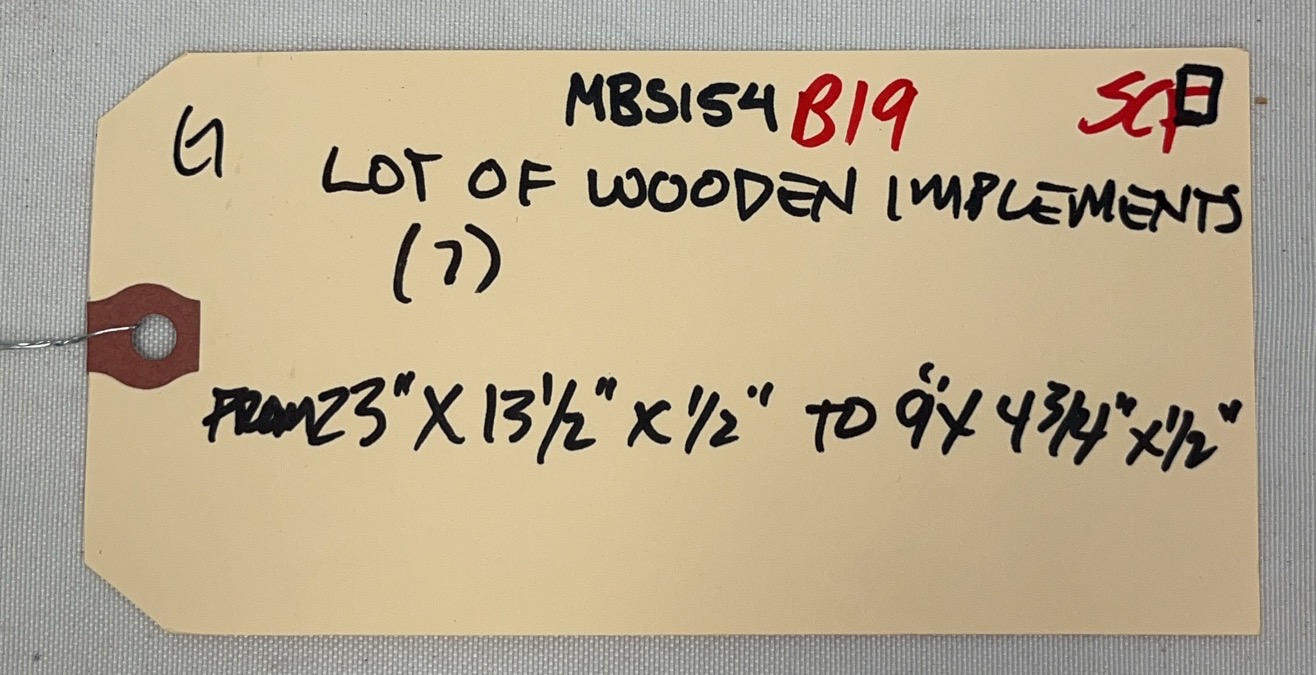 MBS154 B19 SCF
G
LOT OF WOODEN IMPLEMENTS
(7)
FROM 23" X 13 1/2" X 1/2" TO 9" X 4 3/4" X 1/2"